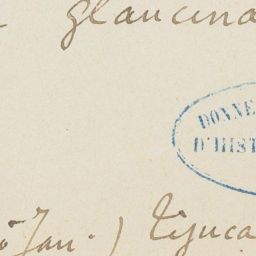 glaucina
DONNE
D'HIST
Jan.) Tijuca